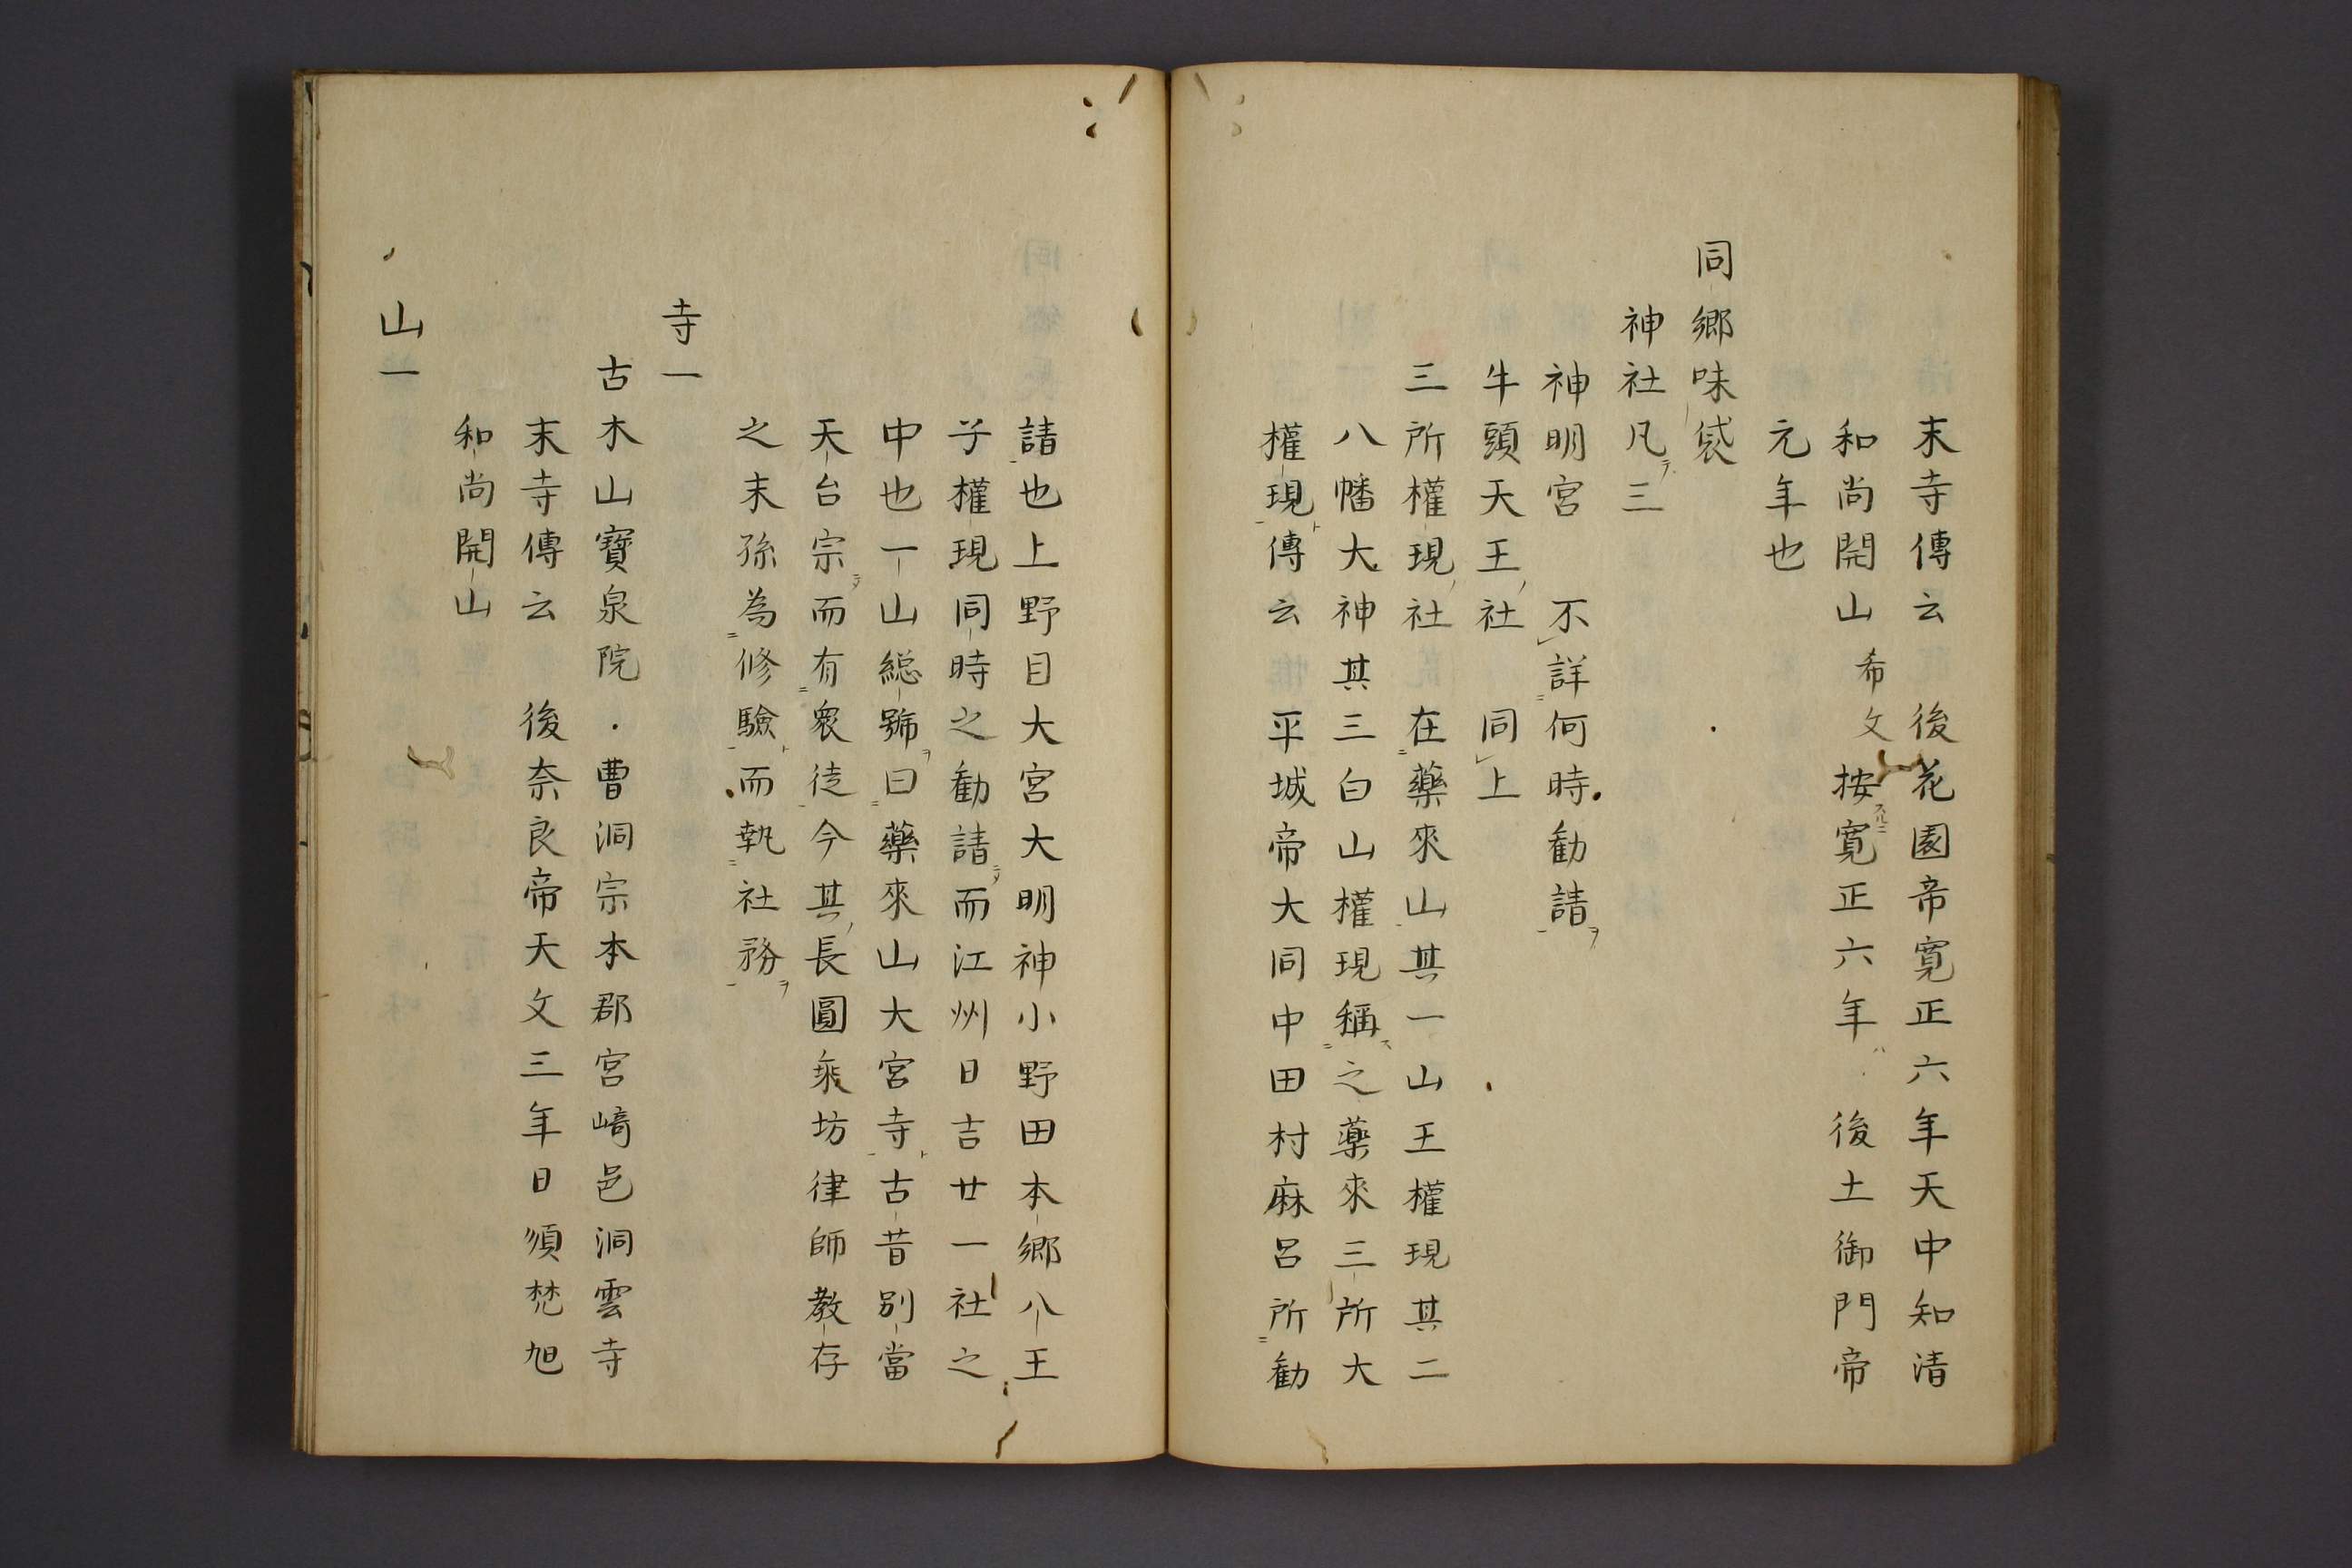 末寺傳云　後花園帝寛正六年天中知清
和尚開山希文　按スルニ寛正六年ハ　後土御門帝
元年也
同郷味袋
神社凡テ三
神明宮　不詳何時勧請ヲ
牛頭天王ノ社　同上
三所權現ノ社　在藥來山其一山王權現其二
八幡大神其三白山權現稱ス之藥來三所大
權現ト傳云　平城帝大同中田村麻呂所勧
請也上野目大宮大明神小野田本郷八王
子權現同時之勧請ニメ而江州日吉廿一社之
中也一山総號ヲ曰藥來山大宮寺ト古昔別當
天台宗ニメ而有衆徒今其ノ長圓乗坊律師教存
之末孫為修驗ト而執社務ヲ
寺一
古木山寶泉院・曹洞宗本郡宮﨑邑洞雲寺
末寺傳云　後奈良帝天文三年日須梵旭
和尚開山
山一